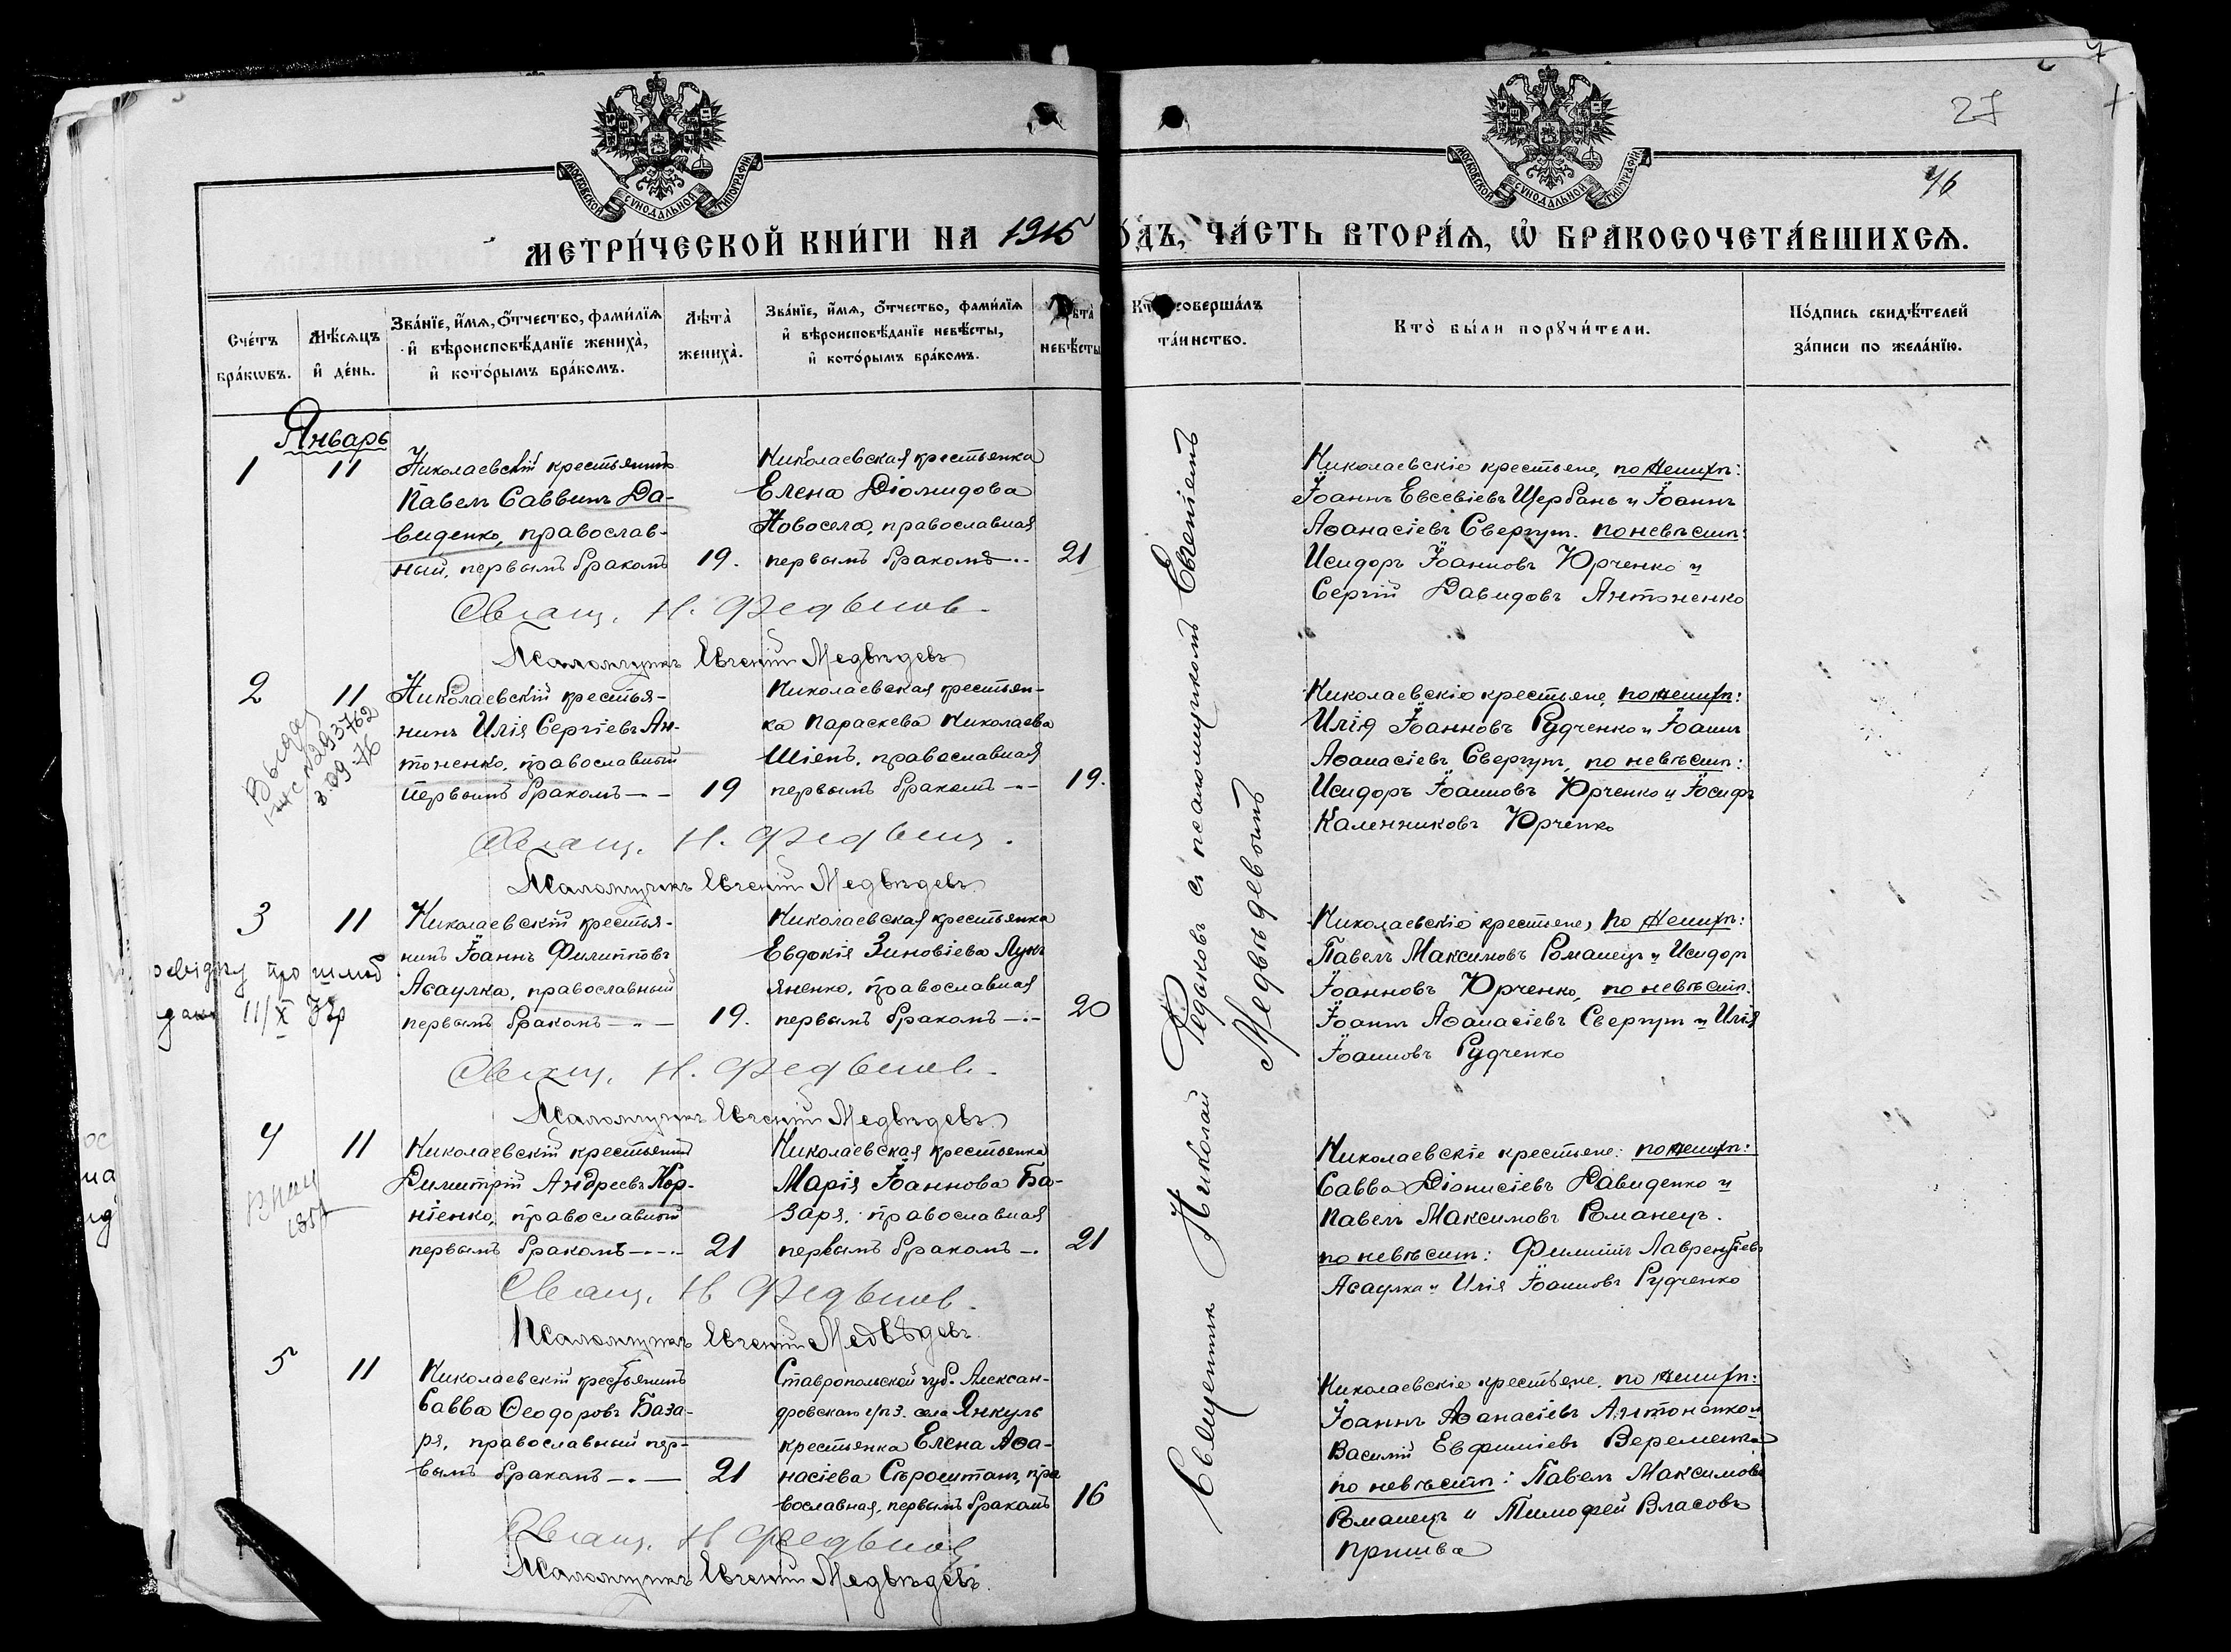 27
46
МОСКОВСКОЙ СѴНОДАЛЬНОЙ ТИПОГРАФІИ
МОСКОВСКОЙ СѴНОДАЛЬНОЙ ТИПОГРАФІИ
МЕТРИ́ЧЕСКОЙ КНИ́ГИ НА 1915
О́ДЪ, ЧА́СТЬ ВТОРА́Ѧ, Ѡ҆ БРАКОСОЧЕТА́ВШИХСѦ.
Сче́тъ бра́кѡвъ.
Мѣ́сѧцъ и҆ де́нь.
Зва́нїе, и҆́мѧ, ѻ҆́тчество, фами́лїѧ
и҆ вѣроисповѣ́данїе жениха̀,
и҆ кото́рымъ бра́комъ.
Лѣ́та̀ жениха̀.
Зва́нїе, и҆́мѧ, ѻ҆́тчество, фами́лїѧ
и҆ вѣроисповѣ́данїе невѣ́сты,
и҆ кото́рымъ бра́комъ.
невѣ́сты
соверша́лъ
та́инство.
Кто̀ бы́ли порꙋчи́тели.
По́дпись свидѣ́телей
за́писи по жела́нїю.
Январь
1
11
Николаевскій крестьянинъ
Павелъ Саввинъ Да-
виденко, православ-
ный, первымъ бракомъ
19.
Николаевская крестьянка
Елена Діомидова
Новосела, православная
первымъ бракомъ
21
Николаевскіе крестьяне, по женихѣ:
Іоаннъ Евсевіевъ Щербань и Іоаннъ
Аѳанасіевъ Свергун. по невѣстѣ:
Исидоръ Іоанновъ Юрченко и
Сергій Давидовъ Антоненко
Свящ. Н.
Псаломщикъ Евгеній Медвѣдевъ
2
11
Николаевскій крестья-
нинъ Илія Сергіевъ Ан-
тоненко, православный
первымъ бракомъ
19
Николаевская крестьян-
ка Параскева Николаева
Шіенъ, православная
первымъ бракомъ
19.
Николаевскіе крестьяне, по женихѣ:
Илія Іоанновъ Рудченко и Іоаннъ
Аѳанасіевъ Свергун, по невѣстѣ:
Исидоръ Іоанновъ Юрченко и Іосифъ
Каленниковъ Юрченко
Свящ. Н.
Псаломщикъ Евгеній Медвѣдевъ
3
11
Николаевскій крестья-
нинъ Іоаннъ Филипповъ
Асаулка, православный
первымъ бракомъ
19.
Николаевская крестьянка
Евдокія Зиновіева Лукъ
яненко, православная
первымъ бракомъ
20
Николаевскіе крестьяне, по женихѣ:
Павелъ Максимовъ Романецъ и Исидоръ
Іоанновъ Юрченко, по невѣстѣ:
Іоаннъ Аѳанасіевъ Свергун и Илія
Іоанновъ Рудченко
про шлюб
11/X
Свящ. Н.
Псаломщикъ Евгеній Медвѣдевъ
4
11
Николаевскій крестьянинъ
Димитрій Андреевъ Кор-
ніенко, православный
первымъ бракомъ
21
Николаевская крестьянка
Марія Іоаннова Ба-
заря, православная
первымъ бракомъ
21
Николаевскіе крестьяне: по женихѣ:
Савва Діонисіевъ Давиденко и
Павелъ Максимовъ Романецъ.
по невѣстѣ: Филиппъ Лаврентіевъ
Асаулка и Илія Іоанновъ Рудченко
Свящ. Н
Псаломщикъ Евгеній Медвѣдевъ.
5
11
Николаевскій крестьянинъ
Савва Ѳеодоровъ База-
ря, православный пер-
вымъ бракомъ
21
Ставропольской губ. Алексан-
дровскаго села Янкуль
крестьянка Елена Аѳа-
насіева Сѣроштанъ, пра
вославная, первымъ бракомъ
16
Николаевскіе крестьяне, по женихѣ:
Іоаннъ Аѳанасіевъ Антоненко и
Василій Евфиміевъ Веременко
по невѣстѣ: Павелъ Максимовъ
Романецъ и Тимофей Власовъ
Пришва
Свящ. Н
Псаломщикъ Евгеній Медвѣдевъ.
Священникъ Николай съ псаломщикомъ Евгеніемъ
Медвѣдевымъ